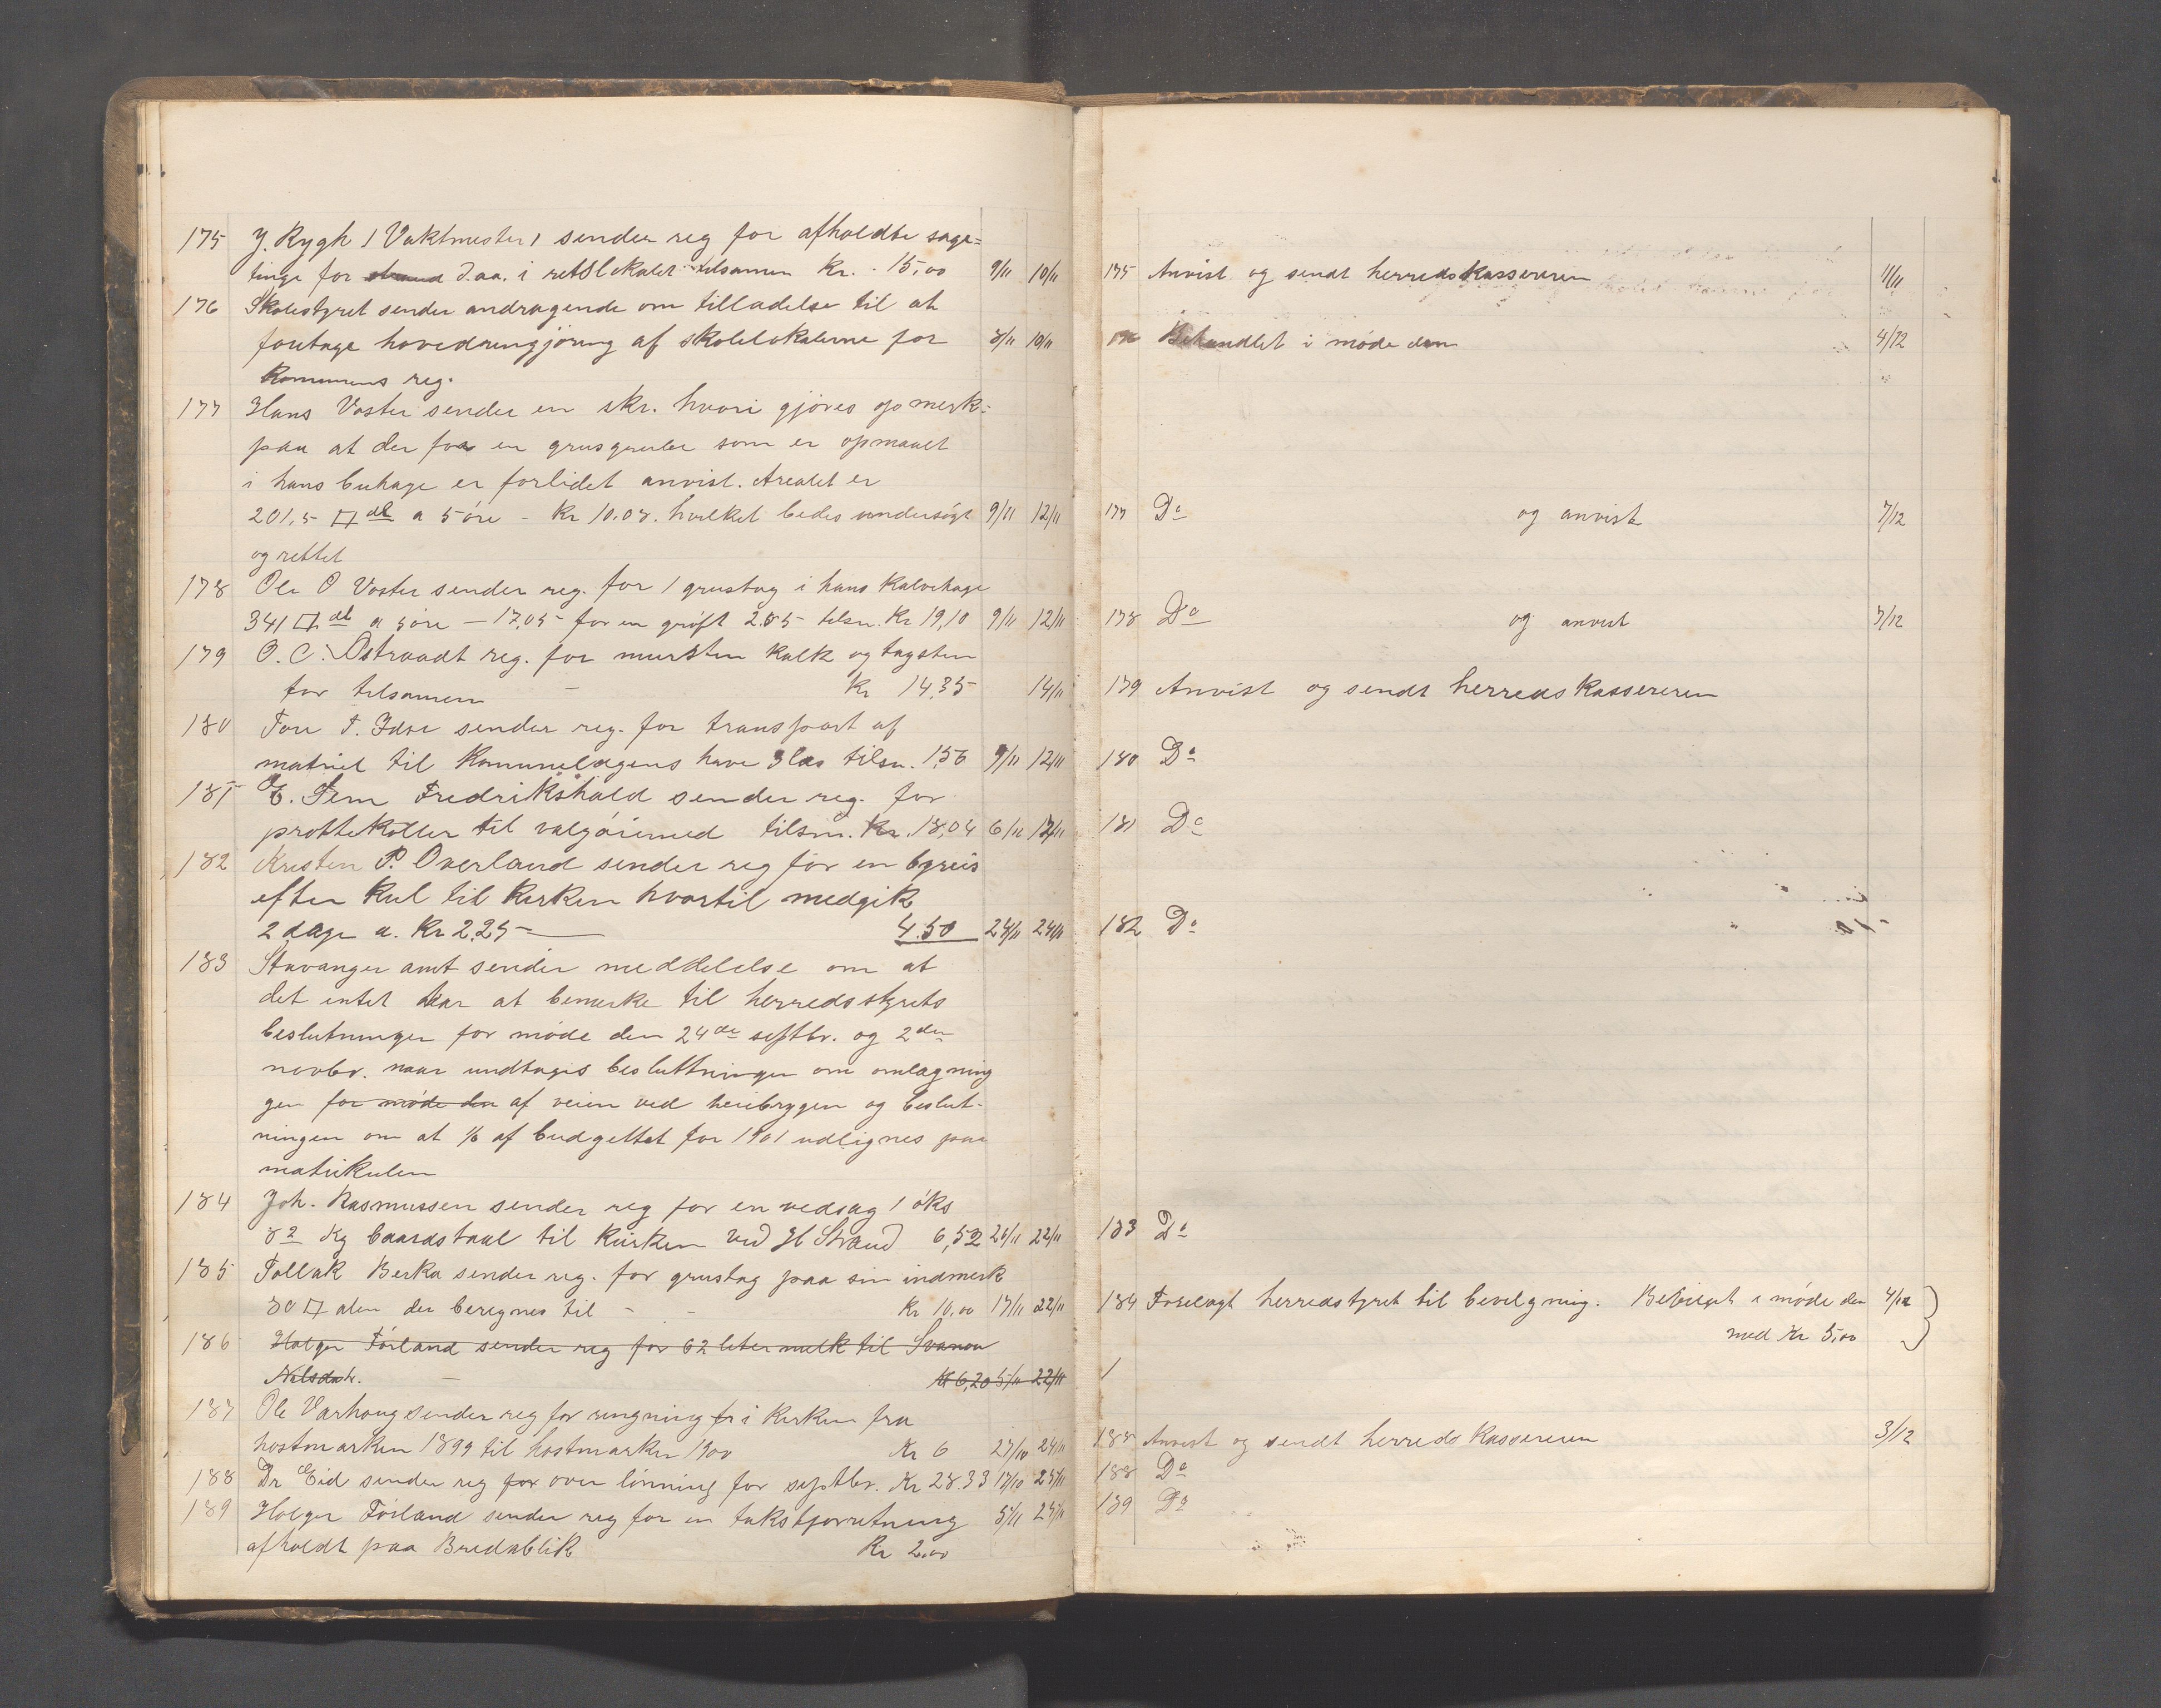 175 J. Rygh / Vaktmester / sender reg for afholdte sage=
tinge for d.aa. i retslokalet tilsamen Kr. - 15,00 9/11 10/11
176 Skolestyret sender andragende om tilladelse til at
foretage hovedrengjøring af skolelokalerne for 8/11 10/11
Kommunens reg.
177 Hans Voster sender en skr. hvori gjøres opmerk=
paa at der for en grusgrube som er opmaalt
i hans buhage er forlidet anvist. Arealet er
201,5 □ al a 5 øre - Kr 10.08. hvilket bedes undersøgt 9/11 12/11
og rettet
178 Ole O Voster sender reg. for 1 grustag i hans Kalvehage
341 □ al a 5 øre - 17,05 for en grøft 2.05 tilsm. Kr 19,10 9/11 12/11
179 O. C. Østraadt reg. for mursten kalk og tagsten
for tilsamen - Kr 14,35 14/11
180 Tore T. Idse sender reg. for transport af
matriel til Kommunelægens have tilsm. 1,56 9/11 12/11
181 E. Sem Fredrikshald sender reg. for
prottekoller til valgøiemed tilsm. Kr. 18,04 6/11 12/11
182 Kristen P. Overland sender reg for en byreis
efter kul til Kirken hvortil medgik
2 dage a. Kr 2,25 4.50 24/11 24/11
183 Stavanger amt sender meddelelse om at
det intet har at bemerke til herredsstyrets
beslutninger for møde den 24de septbr. og 2den
novbr. naar undtages besluttningen om omlægning
gen for møde den af veien ved bryggen og beslut-
ningen om at 1/6 af budgettet for 1901 udlignes paa
matrikulen
184 Joh. Rasmussen sender reg for en vedsag 1 øks
8 2 Kg baandstaal til Kirken ved H Strand 6,52 20/11 22/11
185 Tollak Berka sender reg. for grustag paa sin indmerk
80 □ alen der beregnes til - - Kr 10,00 17/11 22/11
186 Holger Førland sender reg for 62 liter melk til
Nilsdatr. - Kr 6,20 5/11 22/11
187 Ole Varhoug sender reg for ringning i Kirken fra
høstmarken 1899 til høstmarken 1900 Kr 6 27/10 24/11
188 Dr Eid sender reg for over lønning for septbr. Kr 28.33 17/10 24/11
189 Holger Førland sender reg for en takstforretning 5/11 24/11
afholdt paa Bredablik Kr 2.00
175 Anvist og sendt herredskassereren 11/11
176 Behandlet i møde den 4/12
177 Do og anvist 7/12
178 Do og anvist 7/12
179 Anvist og sendt herredskassereren
180 Do
181 Do
182 Do
183 Do
184 Forelagt herredstyret til bevilgning. Bevilget i møde den 4/12
med Kr 5,00
1
188 Anvist og sendt herreds kassereren 3/12
188 Do
189 Do